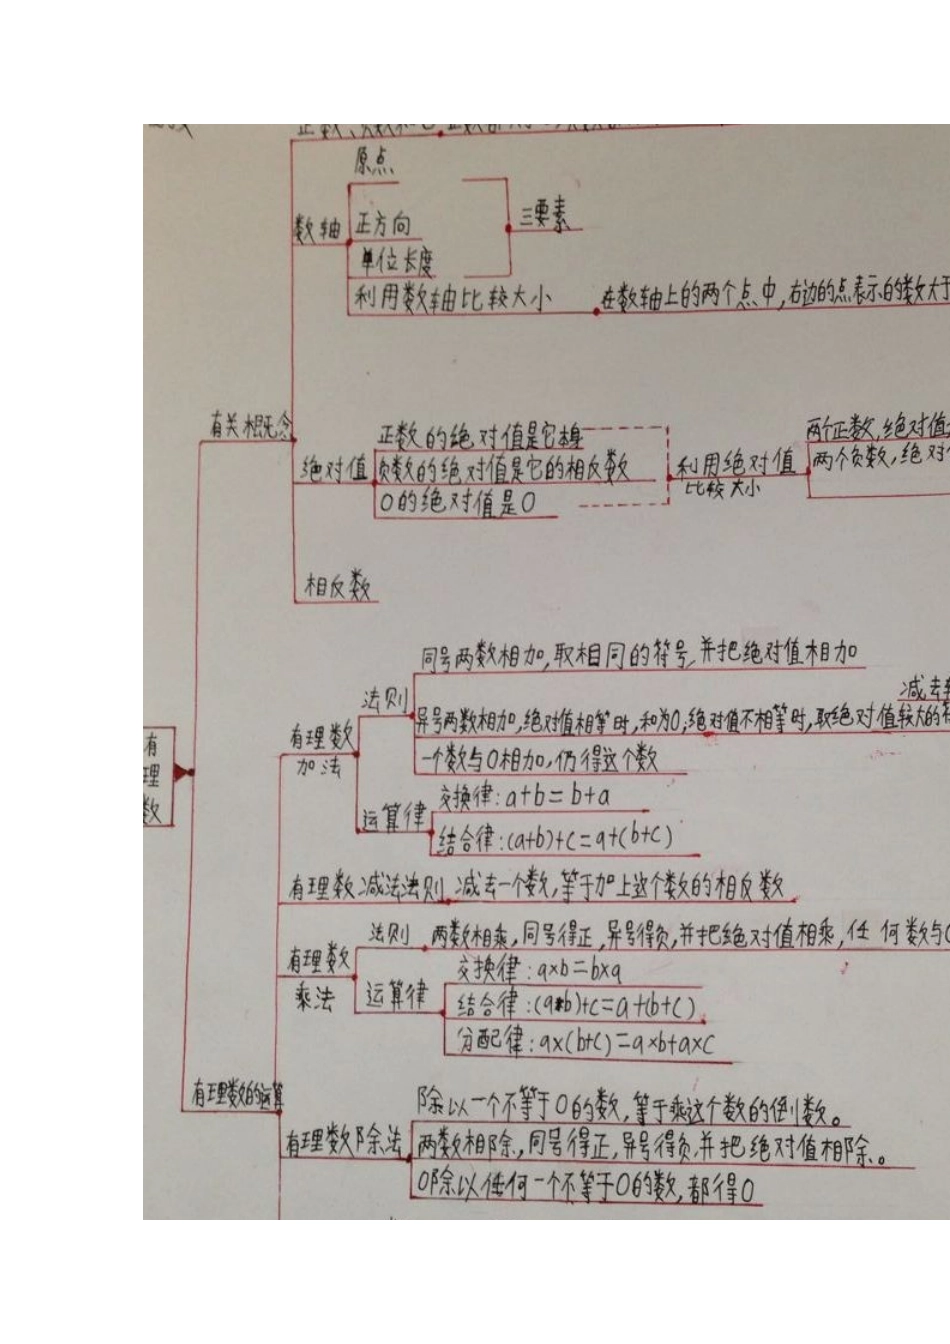 原点
数轴
正方向
三要素
单位长度
利用数轴比较大小
在数轴上的两个点中,右边的点表示的数大于
有关概念
正数的绝对值是它本身
两个正数,绝对值
绝对值
负数的绝对值是它的相反数
利用绝对值
比较大小
两个负数,绝对
0的绝对值是0
相反数
同号两数相加,取相同的符号,并把绝对值相加
法则
减去
异号两数相加,绝对值相等时,和为0,绝对值不相等时,取绝对值较大的
有理数
加法
一个数与0相加,仍得这个数
有
理
数
交换律:a+b=b+a
运算律
结合律:(a+b)+c=a+(b+c)
有理数减法法则
减去一个数,等于加上这个数的相反数
法则
两数相乘,同号得正,异号得负,并把绝对值相乘,任何数与0
有理数
乘法
交换律:a×b=b×a
运算律
结合律:(a*b)+c=a+(b+c)
分配律:a×(b+c)=a×b+a×c
有理数的运算
除以一个不等于0的数,等于乘这个数的倒数。
有理数除法
两数相除,同号得正,异号得负,并把绝对值相除。
0除以任何一个不等于0的数,都得0